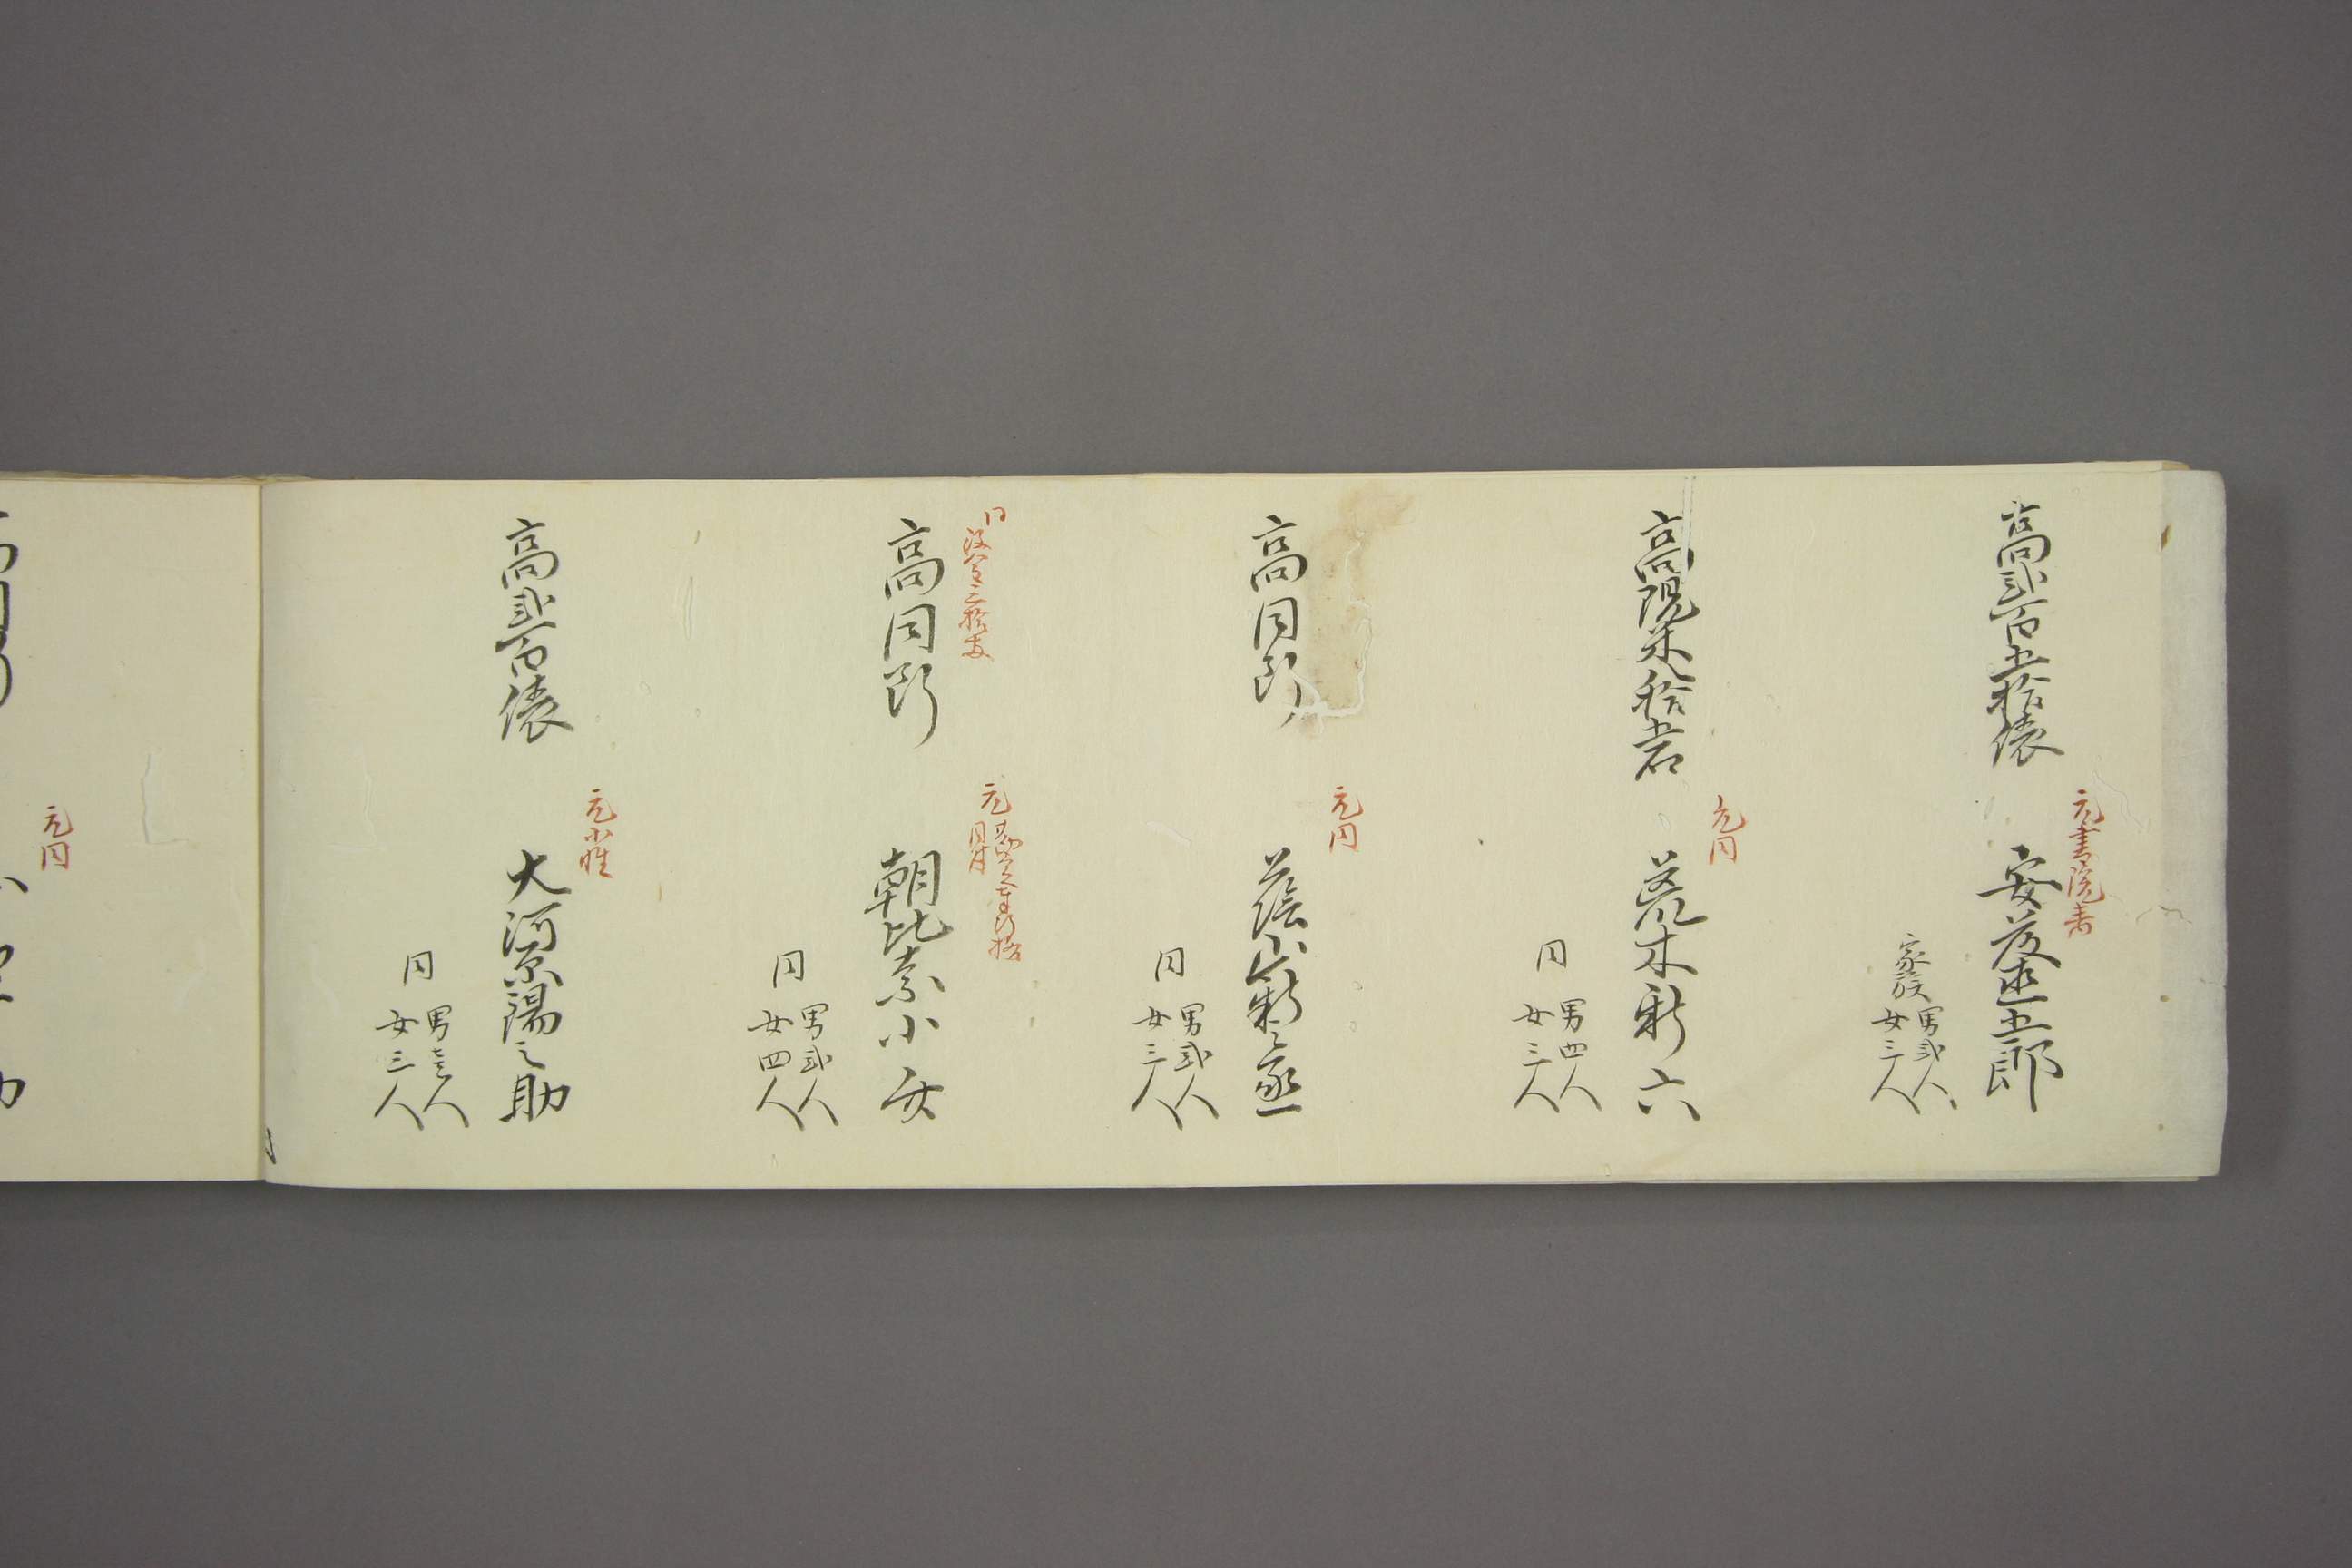 元書院番
高弐百五拾俵
安藤直五郎
家族
男弐人
女三人
元同
高現米八拾石
荒木新六
同
男四人
女三人
元同
高同断
蔭山新之丞
同
男弐人
女三人
元
高同断
朝比奈小女
同
男弐人
女四人
元小性
高弐百俵
大河原陽之助
同
男壱人
女三人
元同